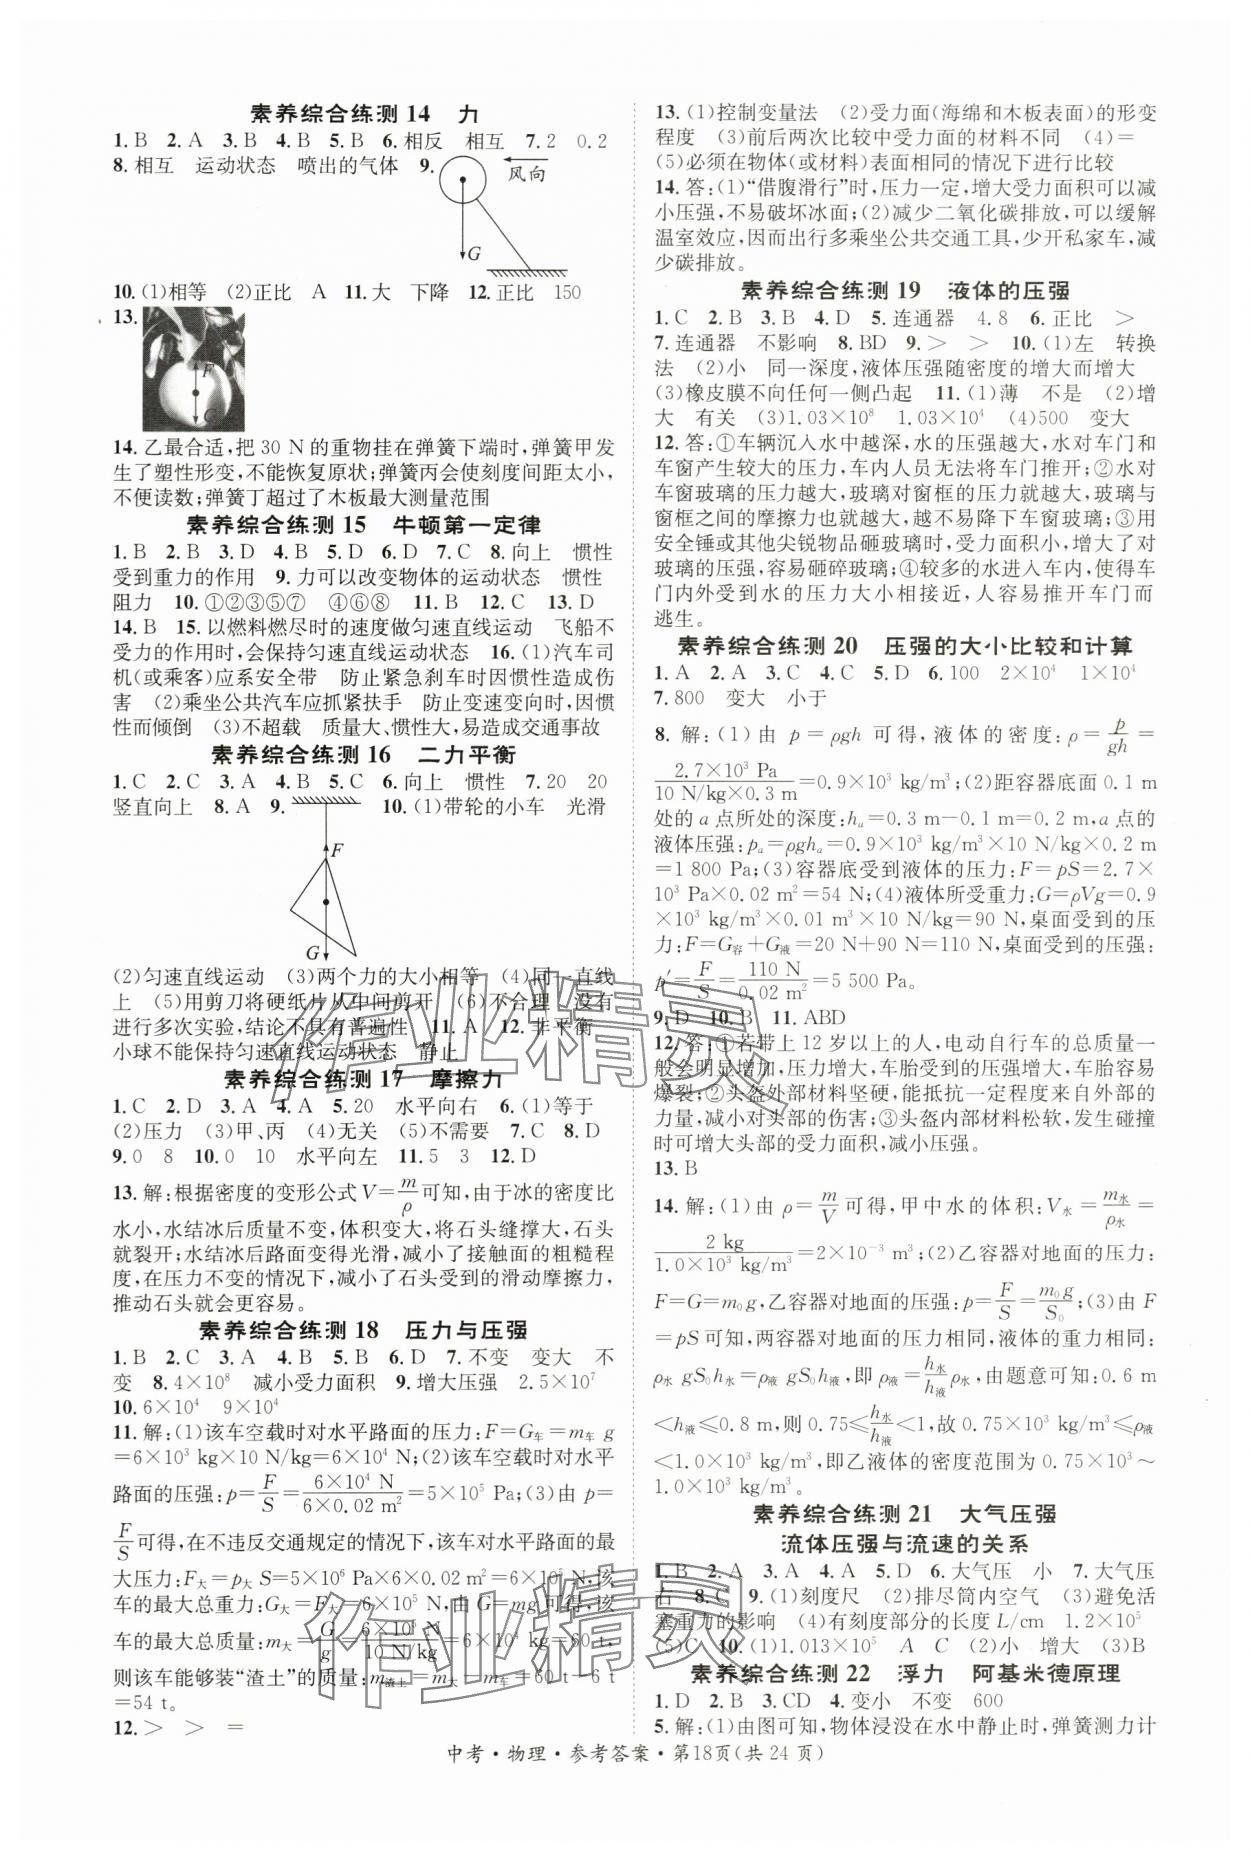 素养综合练测 14　力
1. B　2. A　3. B　4. B　5. B　6. 相反　相互　7. 2　0.2
8. 相互　运动状态　喷出的气体　9.
风向
G
10. (1)相等　(2)正比　A　11. 大　下降　12. 正比　150
13.
F
G
14. 乙最合适,把 30 N 的重物挂在弹簧下端时,弹簧甲发
生了塑性形变,不能恢复原状;弹簧丙会使刻度间距太小,
不便读数;弹簧丁超过了木板最大测量范围
素养综合练测 15　牛顿第一定律
1. B　2. B　3. D　4. B　5. D　6. D　7. C　8. 向上　惯性
受到重力的作用　9. 力可以改变物体的运动状态　惯性
阻力　10. ①②③⑤⑦　④⑥⑧　11. B　12. C　13. D
14. B　15. 以燃料燃尽时的速度做匀速直线运动　飞船不
受力的作用时,会保持匀速直线运动状态　16. (1)汽车司
机(或乘客)应系安全带　防止紧急刹车时因惯性造成伤
害　(2)乘坐公共汽车应抓紧扶手　防止变速变向时,因惯
性而倾倒　(3)不超载　质量大、惯性大,易造成交通事故
素养综合练测 16　二力平衡
1. C　2. C　3. A　4. B　5. C　6. 向上　惯性　7. 20　20
竖直向上　8. A　9.　10. (1)带轮的小车　光滑
F
G
(2)匀速直线运动　(3)两个力的大小相等　(4)同一直线
上　(5)用剪刀将硬纸片从中间剪开　(6)不合理　没有
进行多次实验,结论不具有普遍性　11. A　12. 非平衡
小球不能保持匀速直线运动状态　静止
素养综合练测 17　摩擦力
1. C　2. D　3. A　4. A　5. 20　水平向右　6. (1)等于
(2)压力　(3)甲、丙　(4)无关　(5)不需要　7. C　8. D
9. 0　8　10. 0　10　水平向左　11. 5　3　12. D
13. 解:根据密度的变形公式 V=m/ρ可知,由于冰的密度比
水小,水结冰后质量不变,体积变大,将石头缝撑大,石头
就裂开;水结冰后路面变得光滑,减小了接触面的粗糙程
度,在压力不变的情况下,减小了石头受到的滑动摩擦力,
推动石头就会更容易。
素养综合练测 18　压力与压强
1. B　2. C　3. A　4. B　5. B　6. D　7. 不变　变大　不
变　8. 4×10⁸　减小受力面积　9. 增大压强　2.5×10⁷
10. 6×10⁴　9×10⁴
11. 解:(1)该车空载时对水平路面的压力:F=G车=m车 g
=6×10³ kg×10 N/kg=6×10⁴ N;(2)该车空载时对水平
路面的压强:p=F/S=6×10⁴ N/6×0.02 m²=5×10⁵ Pa;(3)由 p=
F/S可得,在不违反交通规定的情况下,该车对水平路面的最
大压力:F大=p大 S=5×10⁶ Pa×6×0.02 m²=6×10⁵ N,该
车的最大总重力:G大=F大=6×10⁵ N,由 G=mg可得,该
车的最大总质量:m大=G/g=6×10⁵ N/10 N/kg=6×10⁴ kg=60 t,
则该车能够装“渣土”的质量:m渣土=m大-m车=60 t-6 t
=54 t。
12. >　>　=
13. (1)控制变量法　(2)受力面(海绵和木板表面)的形变
程度　(3)前后两次比较中受力面的材料不同　(4)=
(5)必须在物体(或材料)表面相同的情况下进行比较
14. 答:(1)“借腹滑行”时,压力一定,增大受力面积可以减
小压强,不易破坏冰面;(2)减少二氧化碳排放,可以缓解
温室效应,因而出行多乘坐公共交通工具,少开私家车,减
少碳排放。
素养综合练测 19　液体的压强
1. C　2. B　3. B　4. D　5. 连通器　4.8　6. 正比　>
7. 连通器　不影响　8. BD　9. >　>　10. (1)左　转换
法　(2)小　同一深度,液体压强随密度的增大而增大
(3)橡皮膜不向任何一侧凸起　11. (1)薄　不是　(2)增
大　有关　(3)1.03×10⁸　1.03×10⁴　(4)500　变大
12. 答:①车辆沉入水中越深,水的压强越大,水对车门和
车窗产生较大的压力,车内人员无法将车门推开;②水对
车窗玻璃的压力越大,玻璃对窗框的压力也越大,玻璃与
窗框之间的摩擦力也就越大,越不易降下车窗玻璃;③用
安全锤或其他尖锐物品砸玻璃时,受力面积小,增大了对
玻璃的压强,容易砸碎玻璃;④较多的水进入车内,使得车
门内外受到水的压力大小相接近,人容易推开车门而
逃生。
素养综合练测 20　压强的大小比较和计算
1. A　2. A　3. C　4. C　5. D　6. 100　2×10⁴　1×10⁴
7. 800　变大　小于
8. 解:(1)由 p=ρgh 可得,液体的密度:ρ=p/gh=
2.7×10³ Pa/10 N/kg×0.3 m=0.9×10³ kg/m³;(2)距容器底面 0.1 m
处的 a 点所处的深度:hₐ=0.3 m-0.1 m=0.2 m,a 点的
液体压强:pₐ=ρghₐ=0.9×10³ kg/m³×10 N/kg×0.2 m
=1 800 Pa;(3)容器底受到液体的压力:F=pS=2.7×
10³ Pa×0.02 m²=54 N;(4)液体所受重力:G=ρVg=0.9
×10³ kg/m³×0.01 m³×10 N/kg=90 N,桌面受到的压
力:F=G容+G液=20 N+90 N=110 N,桌面受到的压强:
p′=F/S=110 N/0.02 m²=5 500 Pa。
9. D　10. B　11. ABD
12. 答:①若带上 12 岁以上的人,电动自行车的总质量一
般会明显增加,压力增大,车胎受到的压强增大,车胎容易
爆裂;②头盔外部材料坚硬,能抵抗一定程度来自外部的
力量,减小对头部的伤害;③头盔内部材料松软,发生碰撞
时可增大头部的受力面积,减小压强。
13. B
14. 解:(1)由 ρ=m/V可得,甲中水的体积:V水=m水/ρ水=
2 kg/1.0×10³ kg/m³=2×10⁻³ m³;(2)乙容器对地面的压力:
F=G=m₀g,乙容器对地面的压强:p=F/S=m₀g/S₀;(3)由 F
=pS可知,两容器对地面的压力相同,液体的重力相同:
ρ水 gS₀h水=ρ液 gS₀h液,即 ρ液=h水/h液ρ水,由题意可知:0.6 m
<h液≤0.8 m,则 0.75≤h水/h液<1,故 0.75×10³ kg/m³≤ρ液
<1.0×10³ kg/m³,即乙液体的密度范围为 0.75×10³～
1.0×10³ kg/m³。
素养综合练测 21　大气压强
流体压强与流速的关系
1. B　2. A　3. A　4. A　5. D　6. 大气压　小　7. 大气压
右　8. C　9. (1)刻度尺　(2)排尽筒内空气　(3)避免活
塞重力的影响　(4)有刻度部分的长度 L/cm　1.2×10⁵
(5)C　10. (1)1.013×10⁵　A　C　(2)小　增大　(3)B
素养综合练测 22　浮力　阿基米德原理
1. D　2. B　3. CD　4. 变小　不变　600
5. 解:(1)由图可知,物体浸没在水中静止时,弹簧测力计
中考·物理·参考答案·第18页(共 24 页)
作业精灵
作业精灵